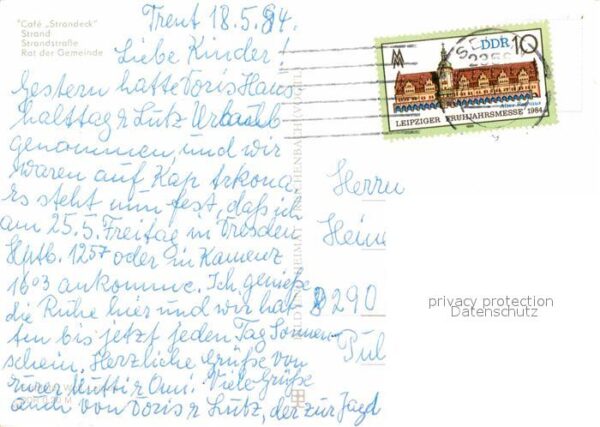 "Café „Strandeck"
Strand
Strandstraße
Rat der Gemeinde
Trent 18.5.84.
Liebe Kinder!
Gestern hatte Doris Haus
halttag & Lutz Urlaub
genommen, und wir
waren auf Kap Arkona.
Es steht nun fest, daß ich
am 25.5. Freitag in Dresden
Hptb. 1257 oder in Kamenz
1603 ankomme. Ich genieße
die Ruhe hier und wir hat-
ten bis jetzt jeden Tag Sonnen
schein. Herzliche Grüße von
eurer Mutti & Omi. Viele Grüße
auch von Doris & Lutz, der zur Jagd
DDR 10
LEIPZIGER FRÜHJAHRSMESSE 1984
Herrn
Hein
8290
Pul
privacy protection
Datenschutz